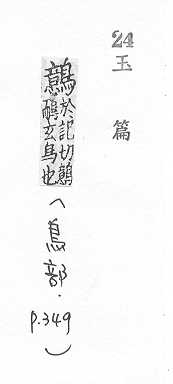 24
玉篇
鷾
於記切鷾
鴯玄鳥也
(鳥部.
p.349)